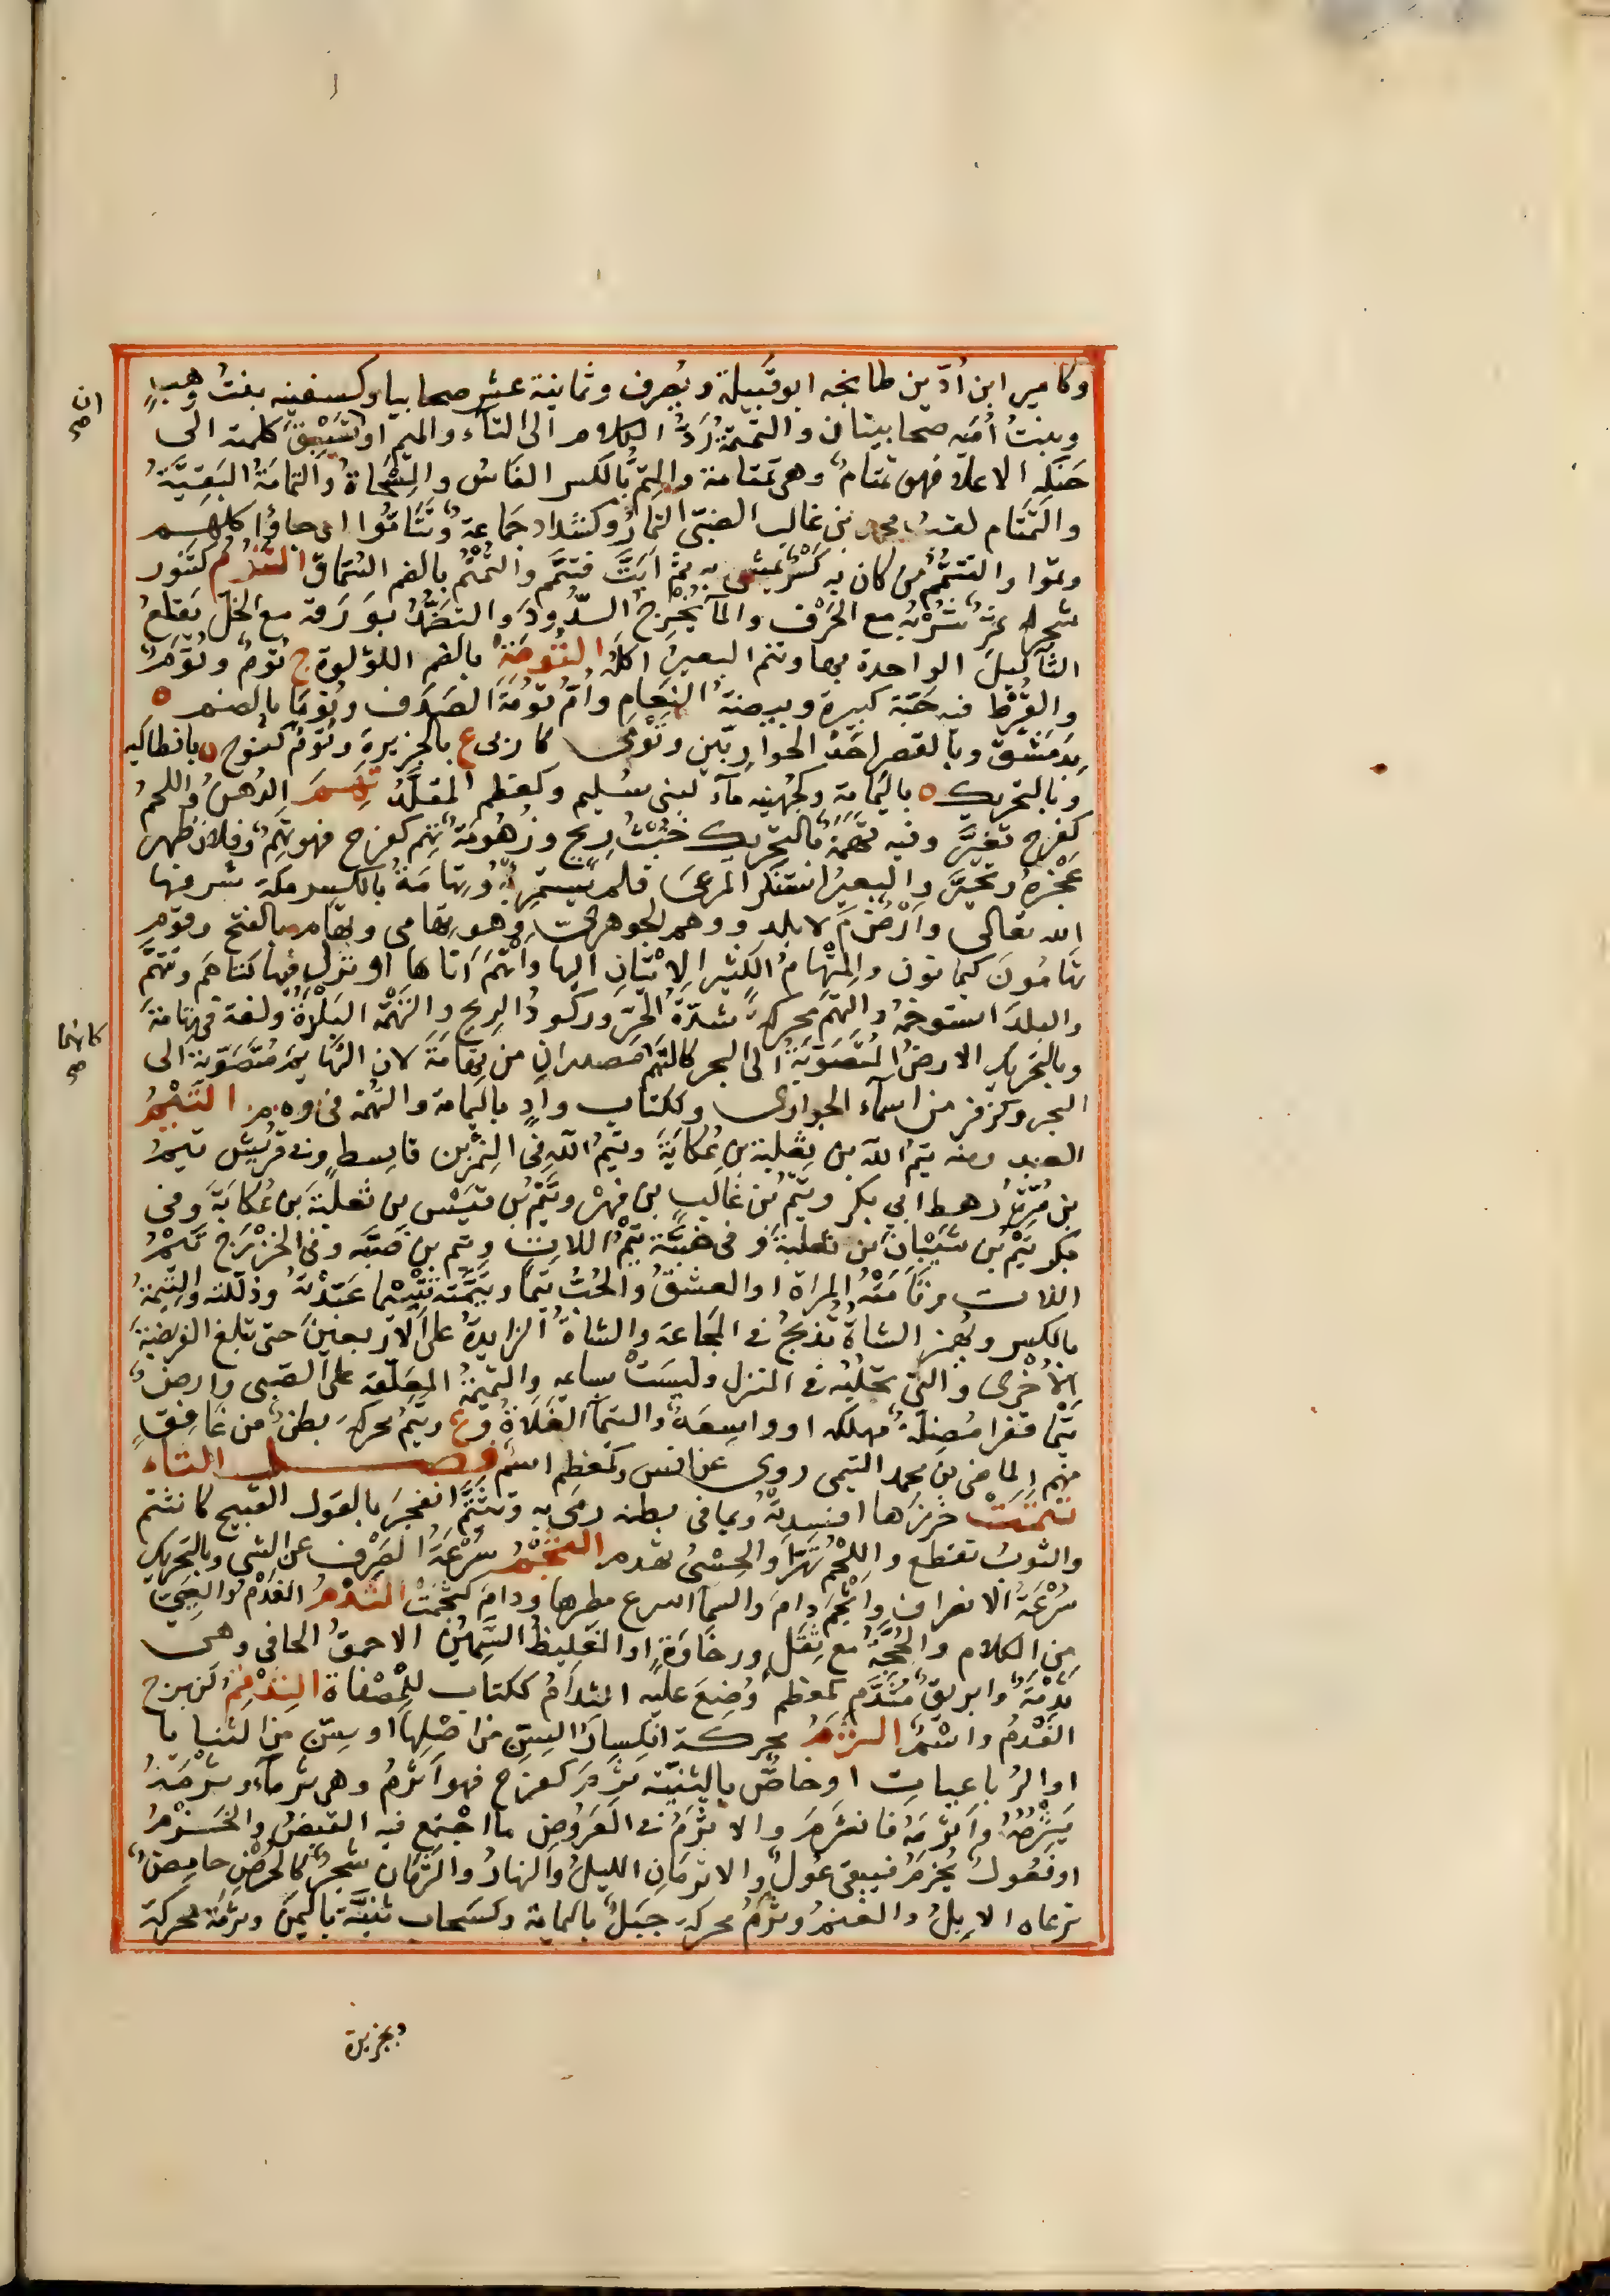 وكامير ابن أدّ بن طابخه ابو قبيلة ويُصرف وثمانية عشر صحابيا وكسفينه بنتُ وهبٍ
وبنتُ أُميّه صحابيتان والتمتمةُ رَدُّ الكلام الى التاء والميم او تَسْبِقَ كلمته الى
حَنَكِه الاعلا فهو تمتامٌ وهي تمتامة والتِمُّ بالكسر الفاسُ والمِسْحَاةُ والتمامَةُ البَقِيَّةُ
والتَمتَام لقبُ محمد بن غالب الضبي التمارُ وكشدّاد جماعة وتَتَامّوا اي جاؤا كلهم
وتموا والتتمُّم من كان به كَسْر يمشي به ثم ابَتَّ فتتمَّم والتُمْتُم بالضم السُمّاق التنُّوم كتنور
شجر له ثمرٌ شُرْبُه مع الحَرْف والمآء يُخْرِج الدُّودَ والتضمُّد بورقه مع الخل يقلعُ
الثآليلَ الواحدة بهاء وتنم البعيرُ اكله التُومَةُ بالضم اللؤلؤة ج تُومٌ وتُوَمٌ
والقُرْط فيه حَبّة كبيرة وبيضةُ النعام وأم تُومَةَ الصَدَف وتُومَا بالضم ه
بدِمَشْقَ وبالقصر احَدُ الحوارِيّين وتُوْمَى كاربي ع بالجزيرة وتُوْمٌ كنوح ه بانطاكيه
وبالتحريك ه باليَمَامة وكجُهَينه مآء لبني سُليم وكمعظم المقلَّدُ تَهِـمَ الدُهن واللحمُ
كفرح تغيَّر وفيه تهَمَةٌ بالتحريك خُبْثُ رِيحٍ وزُهُومَة تَهِم كفرح فهو تَهِمٌ وفلان ظهر
عَجْزهُ وتحيَّر والبعيرُ استنكر المرعَى فلم يَستمرِئه وتِهامَةُ بالكسر مكة شرفها
الله تعالى وارْضٌ م لا بلد ووهم الجوهريّ وهو تهامي وتهام بالفتح وقوم
تهامُونَ كيمانون والمِتْهَامُ الكثير الاِتْيَانِ اليها واَتْهَمَ اَتاها او نزل فيها كتاهَم وتَتَهَّمَ
والبلدَ استوخمهُ والتَهَم محركه شدّةُ الحرّ وركودُ الريح والتَهْمَة البَلْدَةُ ولغة في تهامة
وبالتحريك الارض المتصوبة الى البحر كالتَهم مصدران من تهامةَ لان التهايم متصوّبة الى
البحر وكزفر من اسمآء الجواري وككتاب وادٍ باليمامة والتهمة في وه م التَيْمُ
العبد ومنه تيمُ الله بن ثعلبة بن عُكابَةَ وتيمُ اللّه في النِمْر بن قاسِط وفي قريش تيمُ
بن مُرّةُ رهط ابي بكر وتيمُ بن غالب بن فِهْر وتيمُ بن قَيْس بن ثعلبة بن عُكابَةَ وفي
بكر تيمْ بن شَيْبان بن ثعلبة وفي ضبّة تَيْمُ اللات وتيم بن ضبّه وفي الخزْرَج تَيْمُ
اللات وتامَتْه المراة او العشقُ والحُبُّ تيما وتيَّمَته تتْيِيْما عَبَّدْته وذلّلته والتِيمةُ
بالكسر ويُهمز الشاةُ تُذبحُ في المجاعة والشاةُ الزايدة على الاربعينَ حتى تبلغ الفريضةَ
الاُخْرى والتي تحلبُ في المنزل وليسَتْ بساعيه والتميمة المعلّقة على الصبي وارضٌ
تَيْما قفرا مُضِلة مهلكه او واسِعَةٌ والتيمآ الفَلاةُ وع وتيمُ محركه بطنٌ من غافِقٍ
منهم الماضي بن محمد التيمي روى عن انس وكمعظم اسم فصـــــل الثاء
تثمتَتْ خرزها افسدته وبما في بطنه رمَى به وتثَّم انفجر بالقول القبيح كانثتم
والثوبُ تقطع واللحْم تهَرّأ والحِسْىُ تهدم الثجْمُ سُرْعَةُ الصَرْف عن الشي وبالتحريك
سُرْعَةُ الانصراف وأثجَم دام والسمآ اسرع مطرها ودام كثجَمَتْ الثدْمُ الفَدْمُ والعَيِيّ
من الكلام والحُجّةِ مع ثِقَلٍ ورخاوَةٍ او الغليظُ السَّمِينُ الاحمقُ الجافي وهي
ثدمَة وابريقٌ مُثَدَّم كمعظم وُضِعَ عليه الثدامُ ككتاب للمِصْفاة الثِدْقِمُ كزبرج
الفَدْمُ واسْمٌ الثَرَمُ محركة انكسارُ السِنِّ من اصْلِها او سِنٍّ من الثنايا
او الرُباعِيات او خاصٌّ بالثنيّة ثرِمَ كفرح فهو اَثرمُ وهي ثرمآء وثرَمَهُ
يَثرِمُهُ واَثْرمَهُ فانثَرَم والاثرَمُ في العَرُوض ما اجتمع فيه القبضُ والخَرْمُ
او فعُولُ يُخْرَمُ فيبقى عُولُ والاثرمانِ الليلُ والنهارُ والثَرَمَان شجرٌ كالحُرُضِ حامِضٌ
ترعاه الابلُ والغنم وثَرَمٌ محركه جبَلٌ باليمامة وكسَحاب ثنيّة باليمن وثرَمَة محركة
وبجزيرة
ان صح
كانها صح